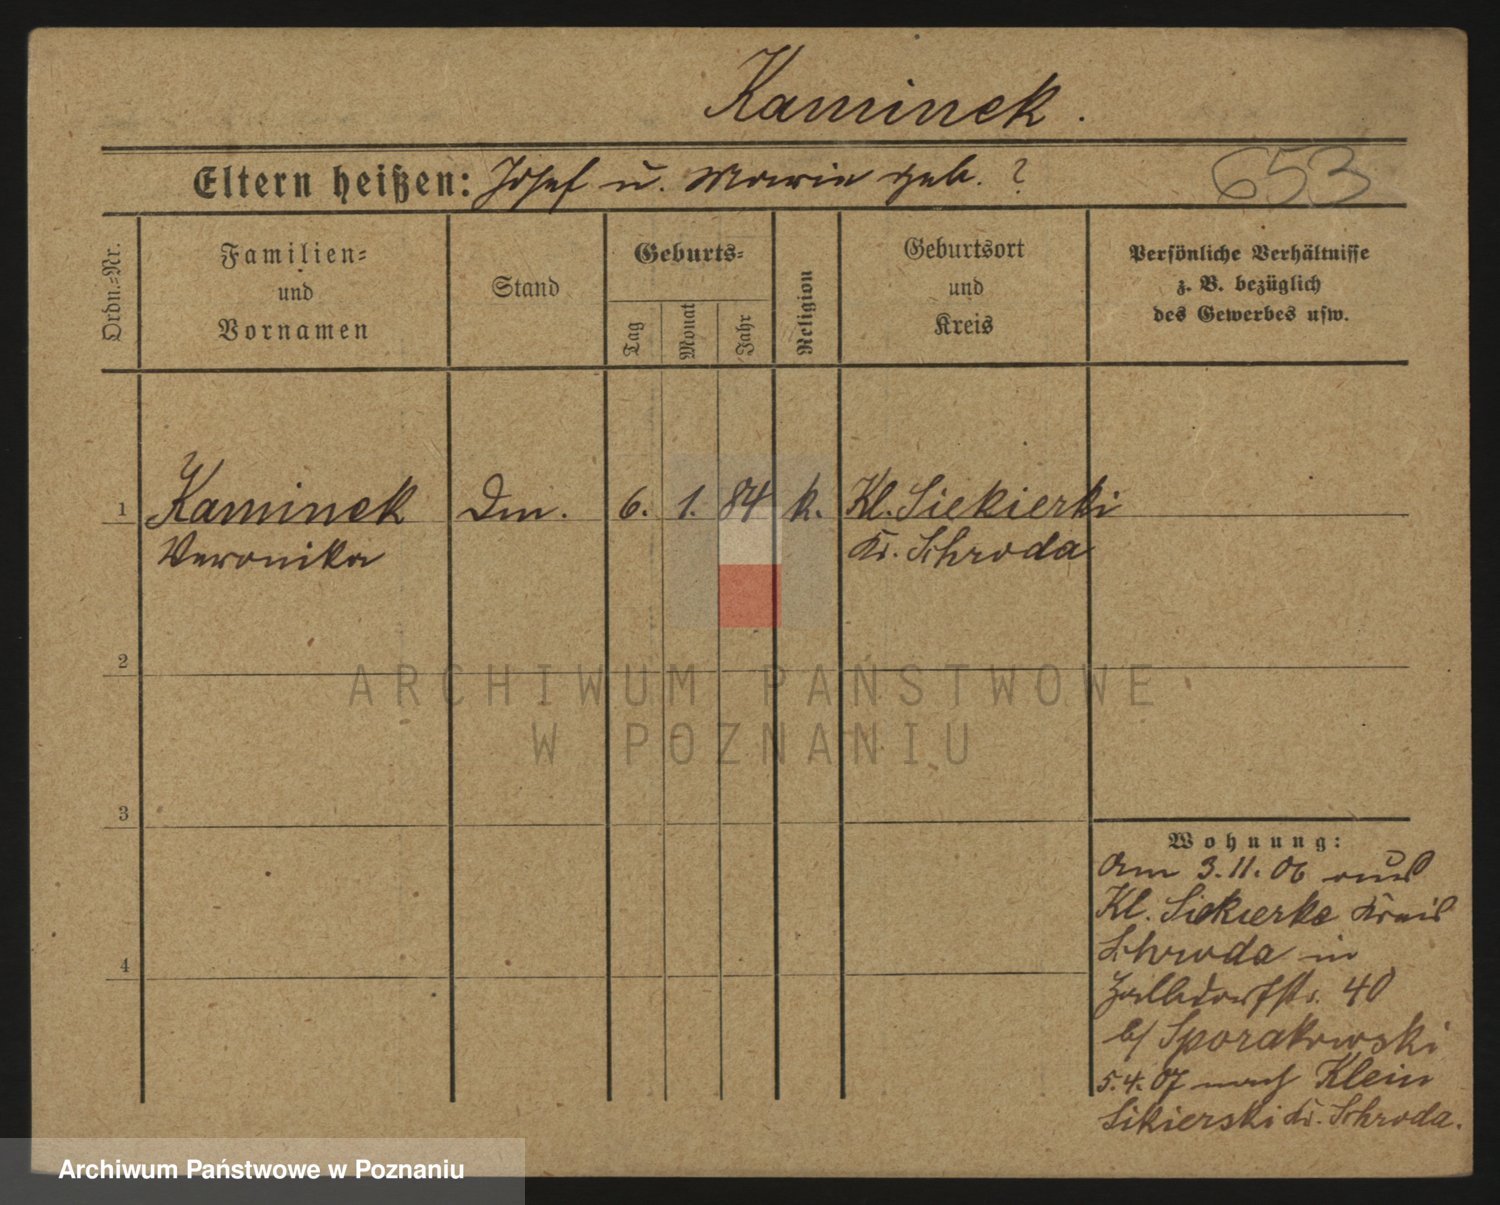 Kaminek.
Eltern heißen: Josef u. Marie geb. ?
653
Ordn.-Nr.
Familien-
und
Vornamen
Stand
Geburts-
Tag
Monat
Jahr
Religion
Geburtsort
und
Kreis
Persönliche Verhältnisse
z. B. bezüglich
des Gewerbes usw.
1 Kaminek Dm. 6. 1. 84 k. Kl. Siekierki
Veronika Kr. Schroda
2
ARCHIWUM PAŃSTWOWE
W POZNANIU
3
Wohnung:
Am 3.11.06 aus
Kl. Siekierke Kreis
Schroda in
40
b/ Sporakowski
5.4.07 nach Klein
Sikierski Kr. Schroda.
4
Archiwum Państwowe w Poznaniu